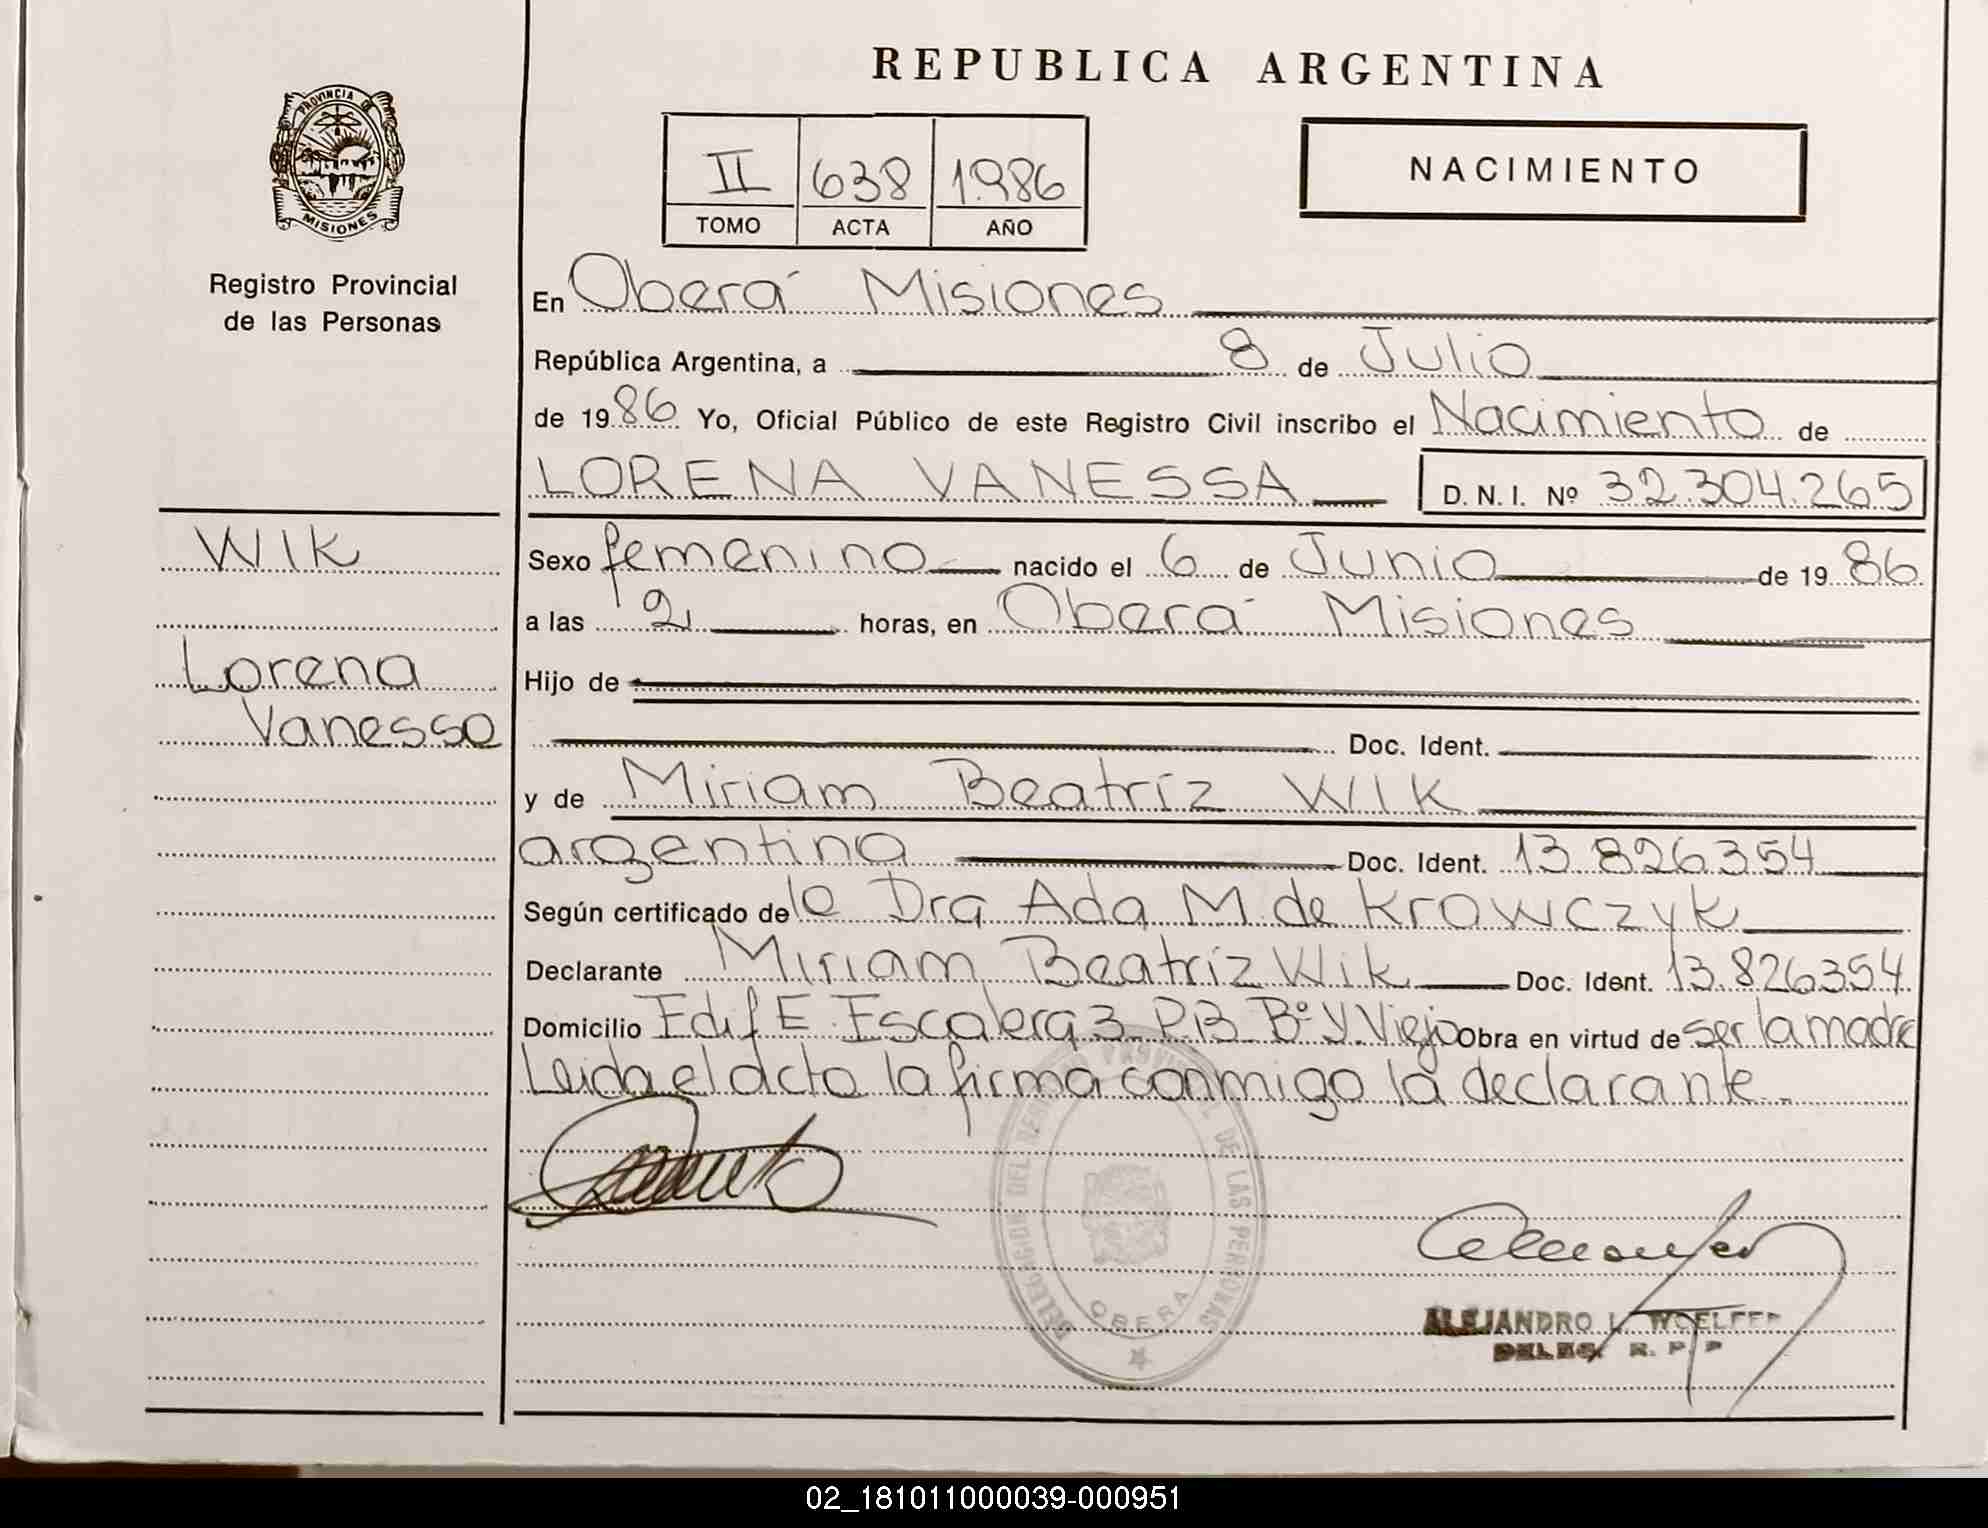 REPUBLICA ARGENTINA
PROVINCIA DE
MISIONES
II 638 1.986
TOMO ACTA AÑO
NACIMIENTO
Registro Provincial
de las Personas
En Oberá Misiones
República Argentina, a 8 de Julio
de 1986 Yo, Oficial Público de este Registro Civil inscribo el Nacimiento de
LORENA VANESSA D. N. I. Nº 32.304.265
WIK
Lorena
Vanessa
Sexo femenino nacido el 6 de Junio de 1986
a las 2 horas, en Oberá Misiones
Hijo de
Doc. Ident.
y de Miriam Beatríz WIK
argentina Doc. Ident. 13.826354
Según certificado de la Dra Ada M de Krawczyk
Declarante Miriam Beatríz Wik Doc. Ident. 13.826354
Domicilio Edif E Escalera 3 P.B Bº Y. Viejo Obra en virtud de ser la madre
Leida el acta la firma conmigo la declarante.
DELEGACION DEL REGISTRO PROVINCIAL DE LAS PERSONAS
OBERA
ALEJANDRO L. WOELFER
DELEG. R. P. P
02_181011000039-000951